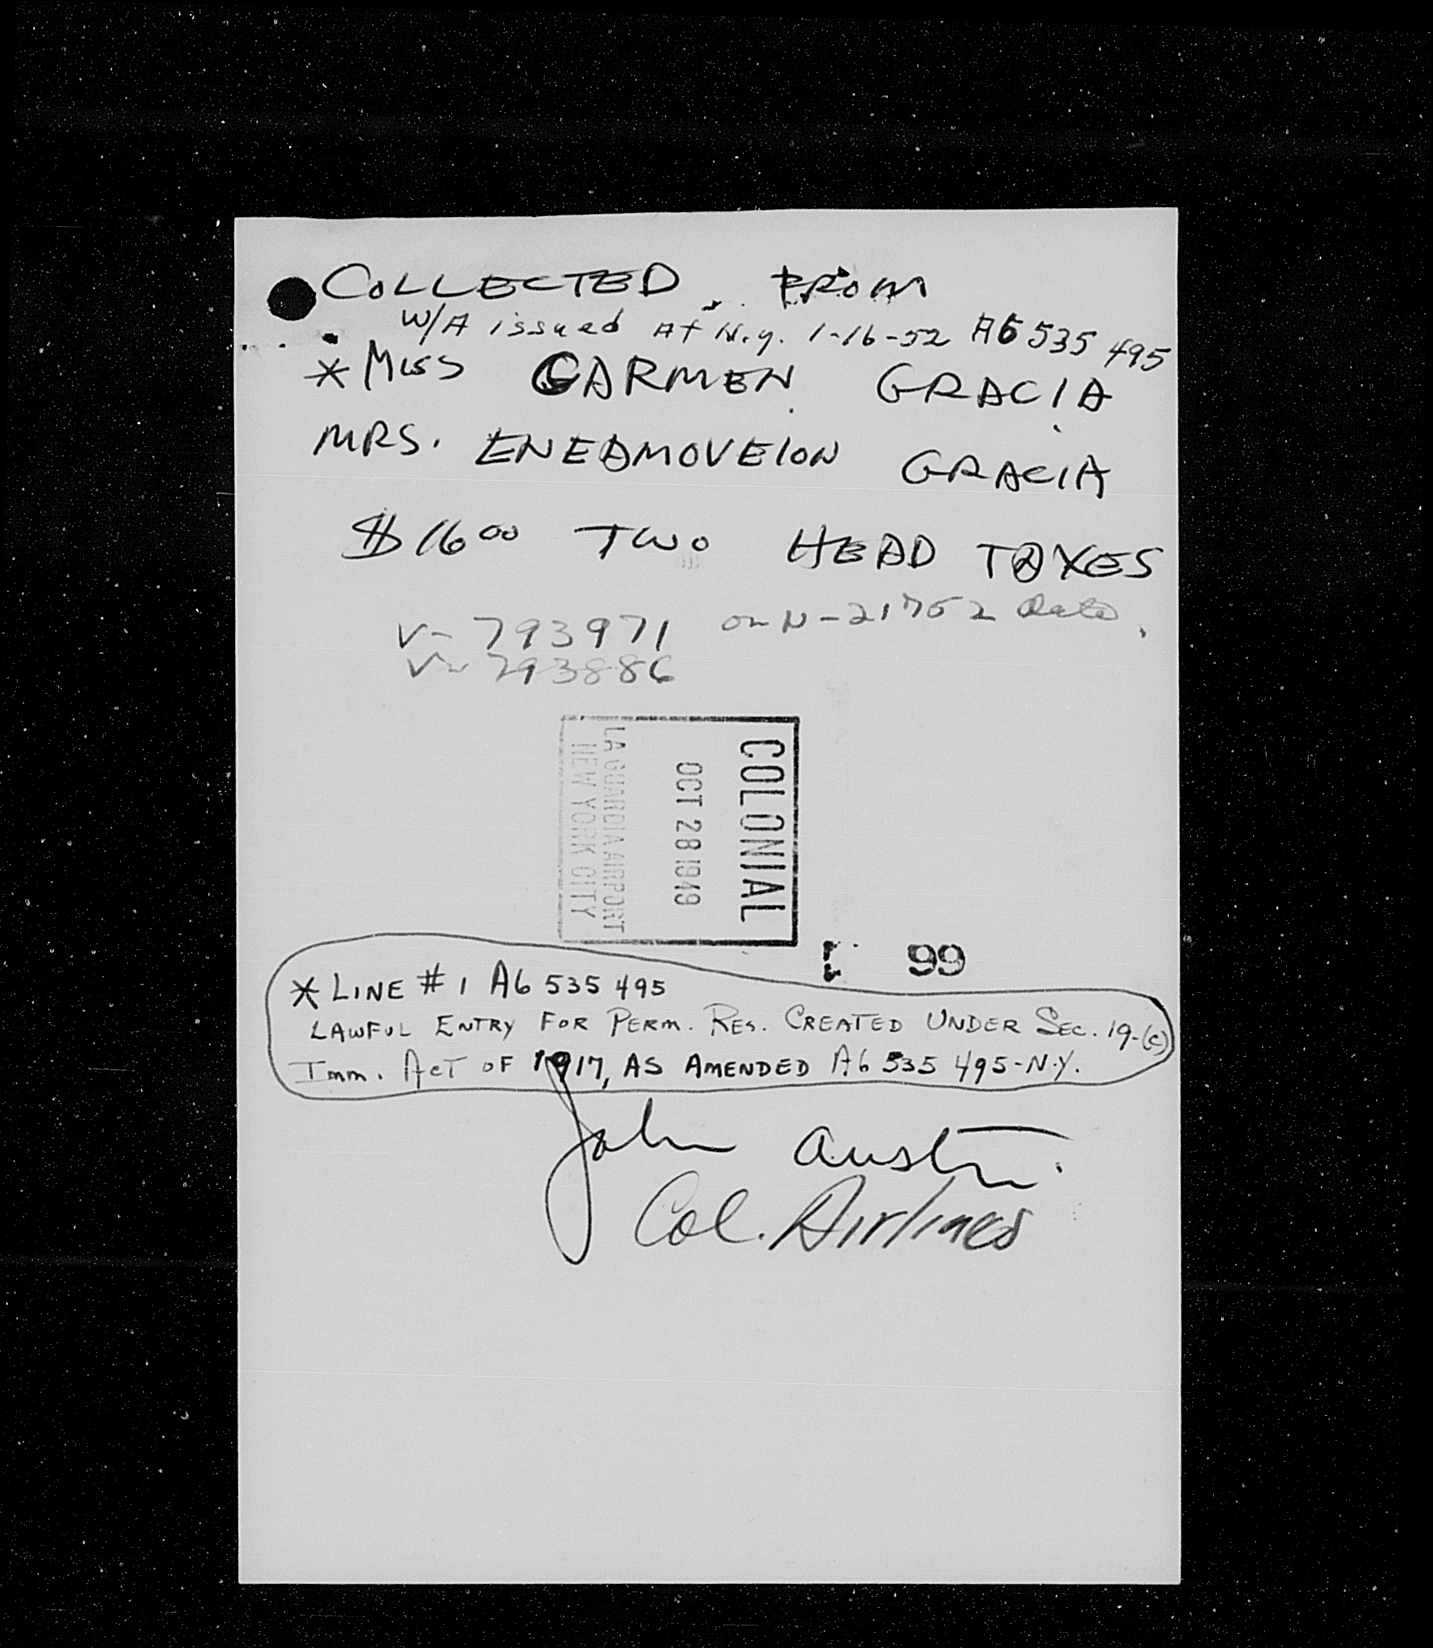 COLLECTED FROM
W/A issued At N.Y. 1-16-52 A6 535 495
* MISS CARMEN GRACIA
MRS. ENEDMOVEION GRACIA
$16 00 TWO HEAD TAXES
V- 793971 on N-21752 date.
V- 793886
COLONIAL
OCT 28 1949
LA GUARDIA AIRPORT
NEW YORK CITY
99
* LINE # 1 A6 535 495
LAWFUL ENTRY FOR PERM. RES. CREATED UNDER SEC. 19-(c)
Imm. ACT OF 1917, AS AMENDED A6 535 495-N.Y.
John Austin.
Col. Airlines